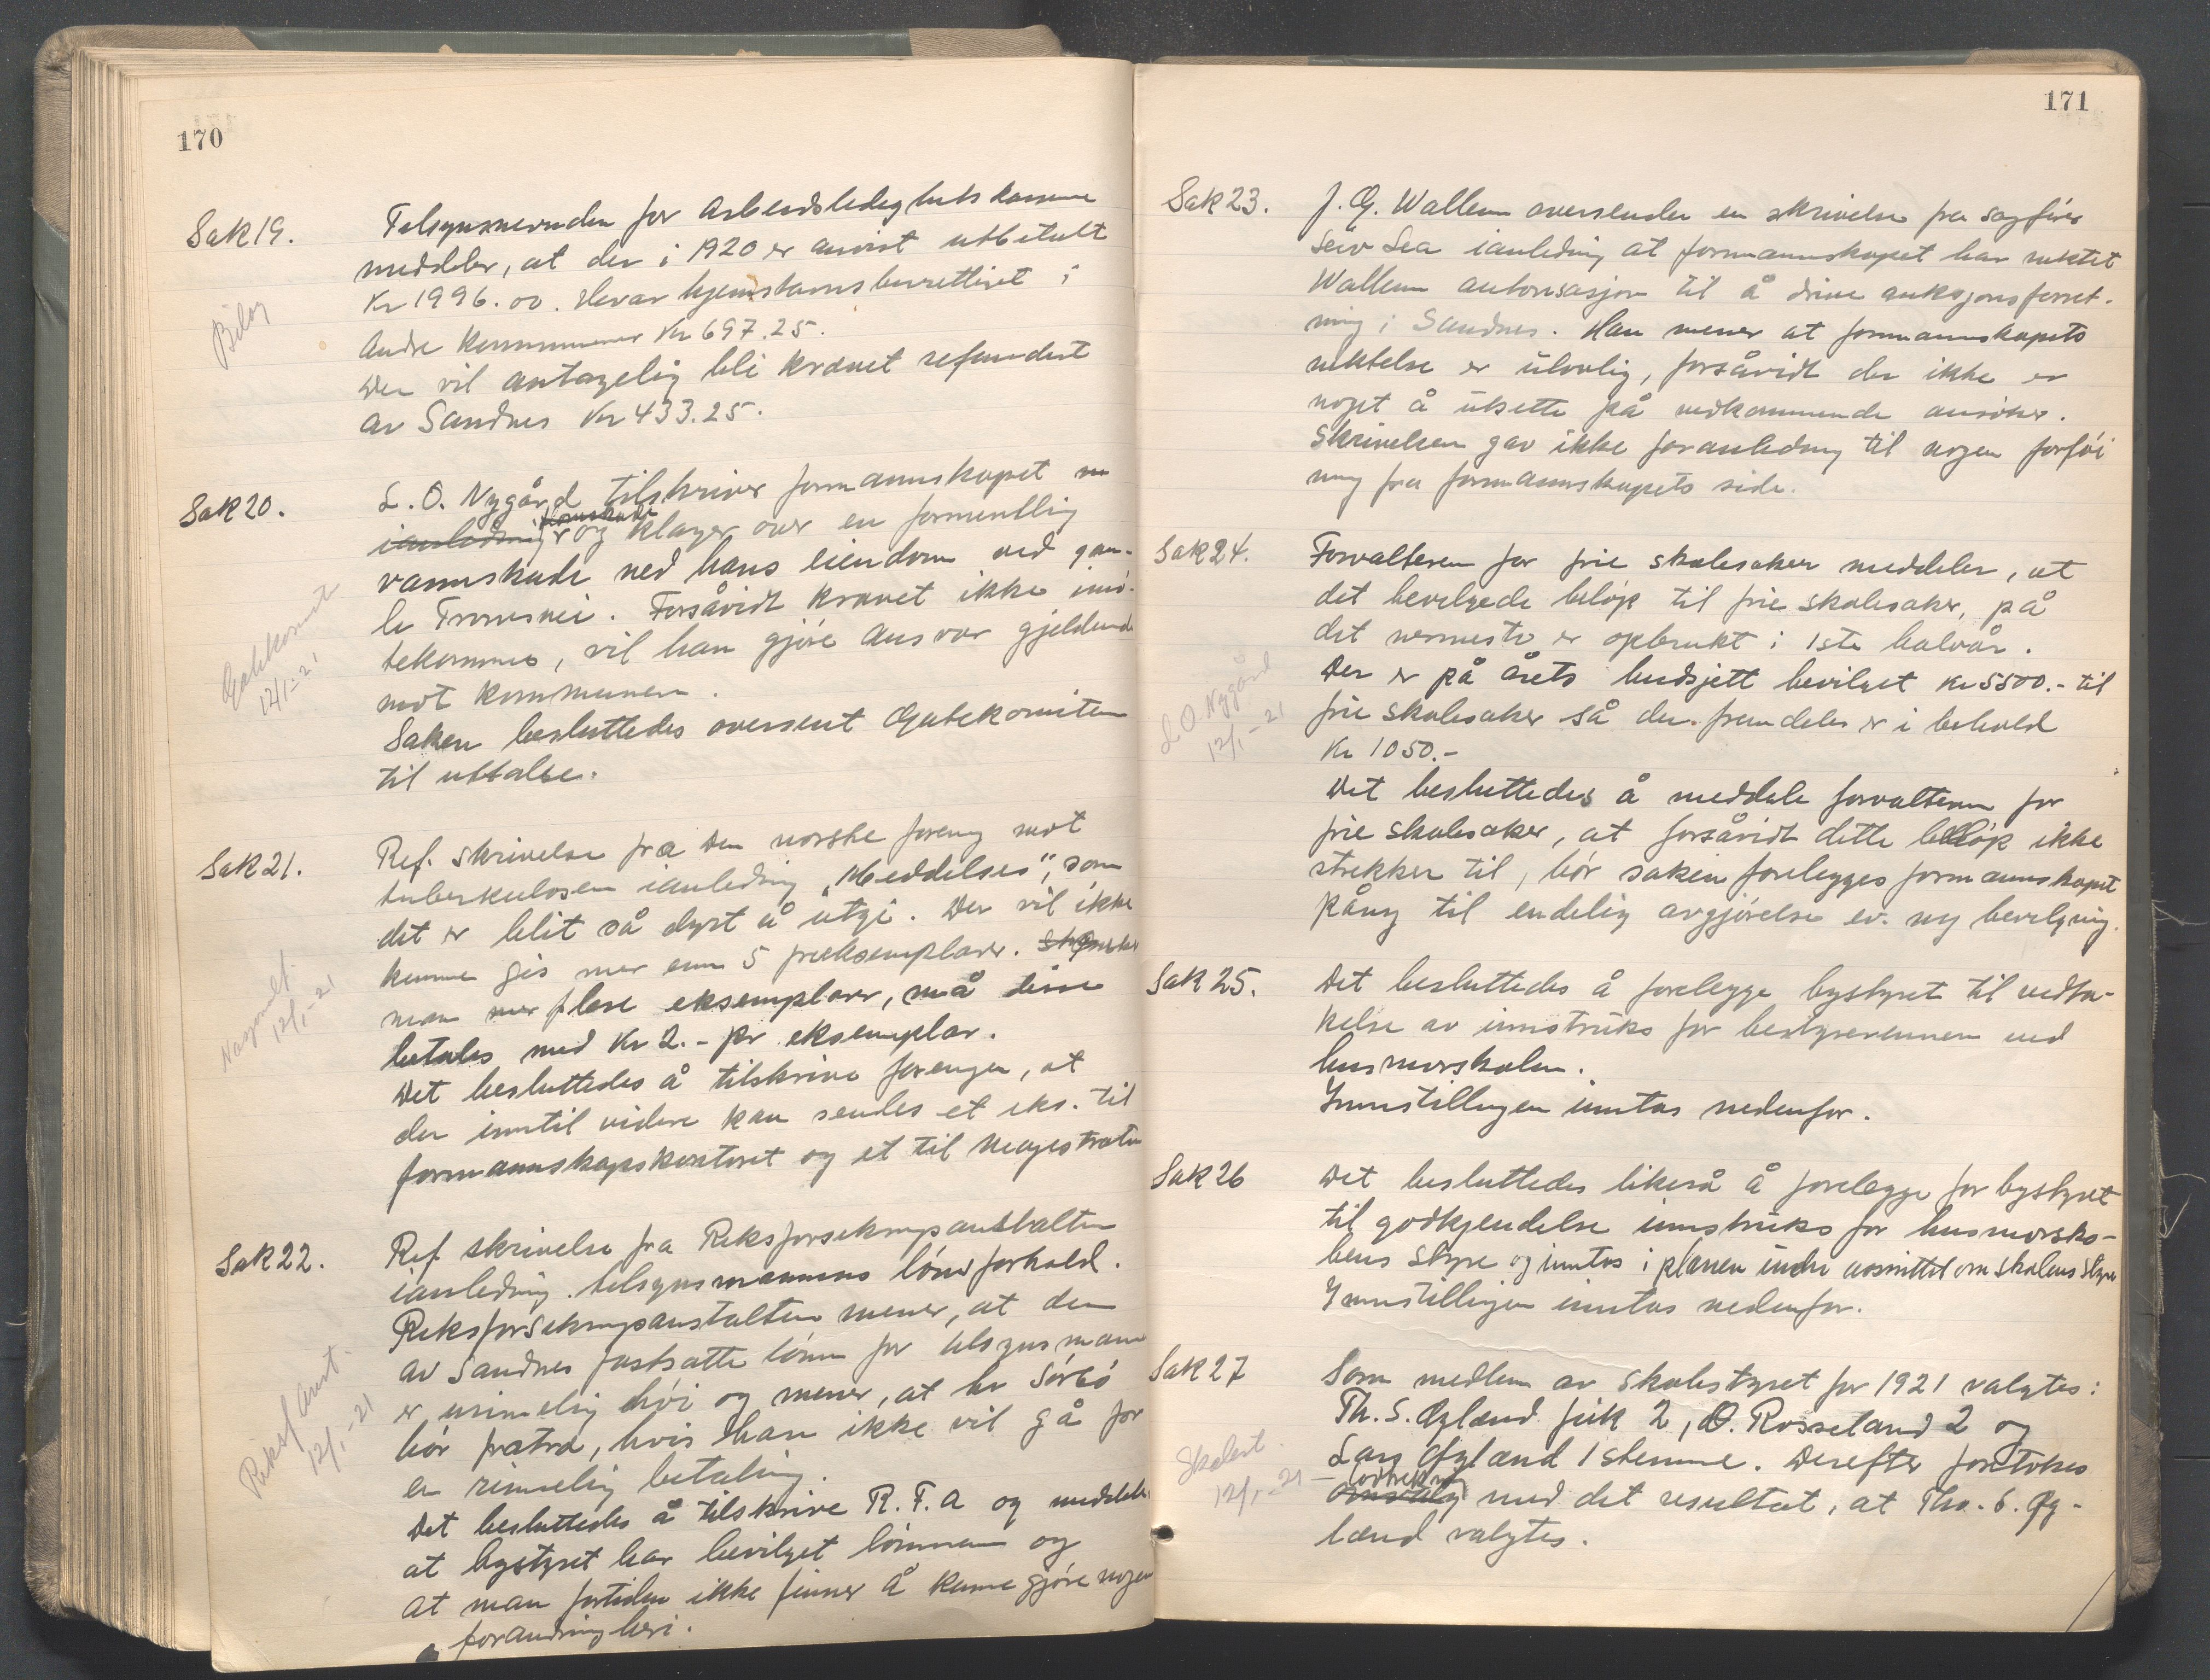 170
Sak 19.
Tilsynsnevnden for Arbeidsledighetskassene
meddeler, at der i 1920 er anvist utbetalt
Kr 1996.00. Herav hjemstavnsberettiget i
Andre kommuner Kr 697.25.
Der vil antagelig bli krævet refundert
av Sandnes Kr 433.25.
Bilag
Sak 20.
L. O. Nygård tilskriver formannskapet
ianledning og klager over en formentlig
vannskade ved hans eiendom ved gam-
le Tronesvei. Forsåvidt kravet ikke imö-
tekommes, vil han gjöre ansvar gjeldende
mot kommunen.
Saken besluttedes oversent Gatekomiteen
til uttalelse.
Gatekomit
12/1-21
Sak 21.
Ref. skrivelse fra Den norske forening mot
tuberkulosen ianledning "Meddelses", som
det er blit så dyrt å utgi. Der vil ikke
kunne gis mer enn 5 frieksemplarer. Ønsker
man mer flere eksemplarer, må disse
betales med Kr 2.- pr. eksemplar.
Det besluttedes å tilskrive forengen, at
der inntil videre kan sendes et eks. til
formannskapskontoret og et til Magistraten
12/1-21
Sak 22.
Ref skrivelse fra Riksforsikringsanstalten
ianledning tilsynsmannens lönsforhold.
Riksforsikringsanstalten mener, at den
av Sandnes fastsatte lönn for tilsynsmann
er urimelig höi og mener, at hr Sörbö
bör fratræ, hvis han ikke vil gå for
en rimelig betaling.
Det besluttedes å tilskrive R. F. A og meddele
at bystyret har bevilget lönnen og
at man fortiden ikke finner å kunne gjöre nogen
forandring heri.
Riksf Anst.
12/1-21
171
Sak 23.
J. G. Wallem oversender en skrivelse fra sagförer
Seiv Lea ianledning at formannskapet har nektet
Wallem autorisasjon til å drive auksjonsforret-
ning i Sandnes. Han mener at formannskapets
nektelse er ulovlig, forsåvidt der ikke er
noget å utsette på vedkommende ansöker.
Skrivelsen gav ikke foranledning til nogen forföi
ning fra formannskapets side.
Sak 24.
Forvalteren for frie skolesaker meddeler, at
det bevilgede belöp til frie skolesaker, på
det nermeste er opbrukt i 1ste halvår.
Der er på årets budsjett bevilget Kr 5500.- til
frie skolesaker så der fremdeles er i behold
Kr 1050.-
Det besluttedes å meddele forvalteren for
frie skolesaker, at forsåvidt dette belöp ikke
strekker til, bör saken forelegges formannskapet
påny til endelig avgjörelse ev. ny bevilgning.
L. O. Nygård
12/1-21
Sak 25.
Det besluttedes å forelegge bystyret til vedta-
kelse av innstruks for bestyrerinnen ved
husmorskolen.
Innstillingen inntas nedenfor.
Sak 26
Det besluttedes likeså å forelegge for bystyret
til godkjendelse innstruks for husmorsko-
lens styre og inntas i planen under avsnittet om skolens styre
Innstillingen inntas nedenfor.
Sak 27
Som medlem av skolestyret for 1921 valgtes:
Th. S. Øglænd fik 2, O. Rosseland 2 og
Lars Øglænd 1 stemme. Derefter foretokes
lodtrekning
omvalg med det resultat, at Tho. S. Øg-
lænd valgtes.
Skolest.
12/1-21